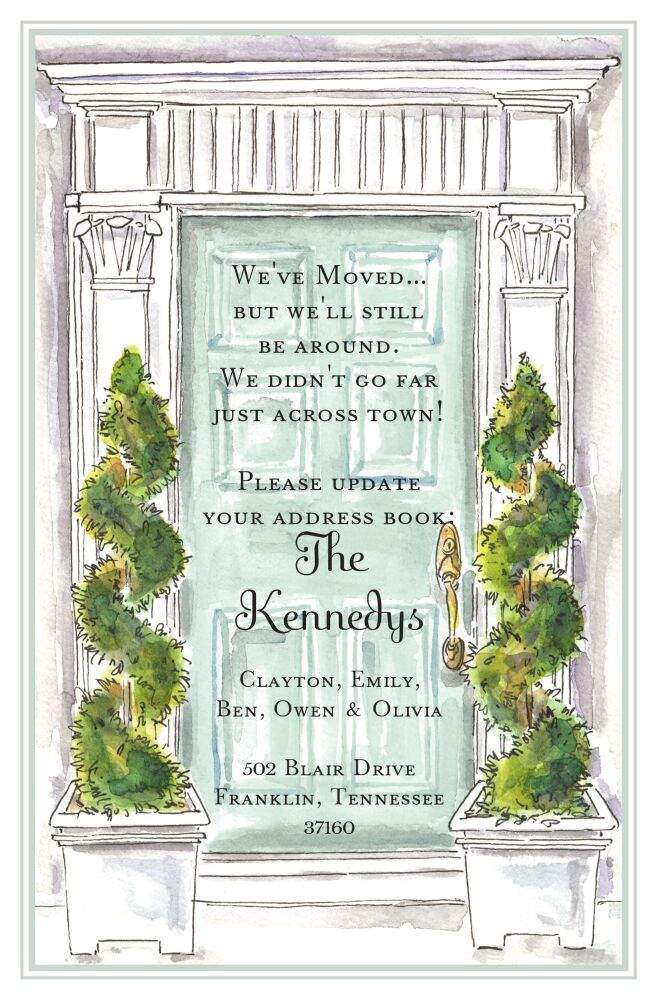 We've Moved...
but we'll still
be around.
We didn't go far
just across town!
Please update
your address book:
The
Kennedys
Clayton, Emily,
Ben, Owen & Olivia
502 Blair Drive
Franklin, Tennessee
37160